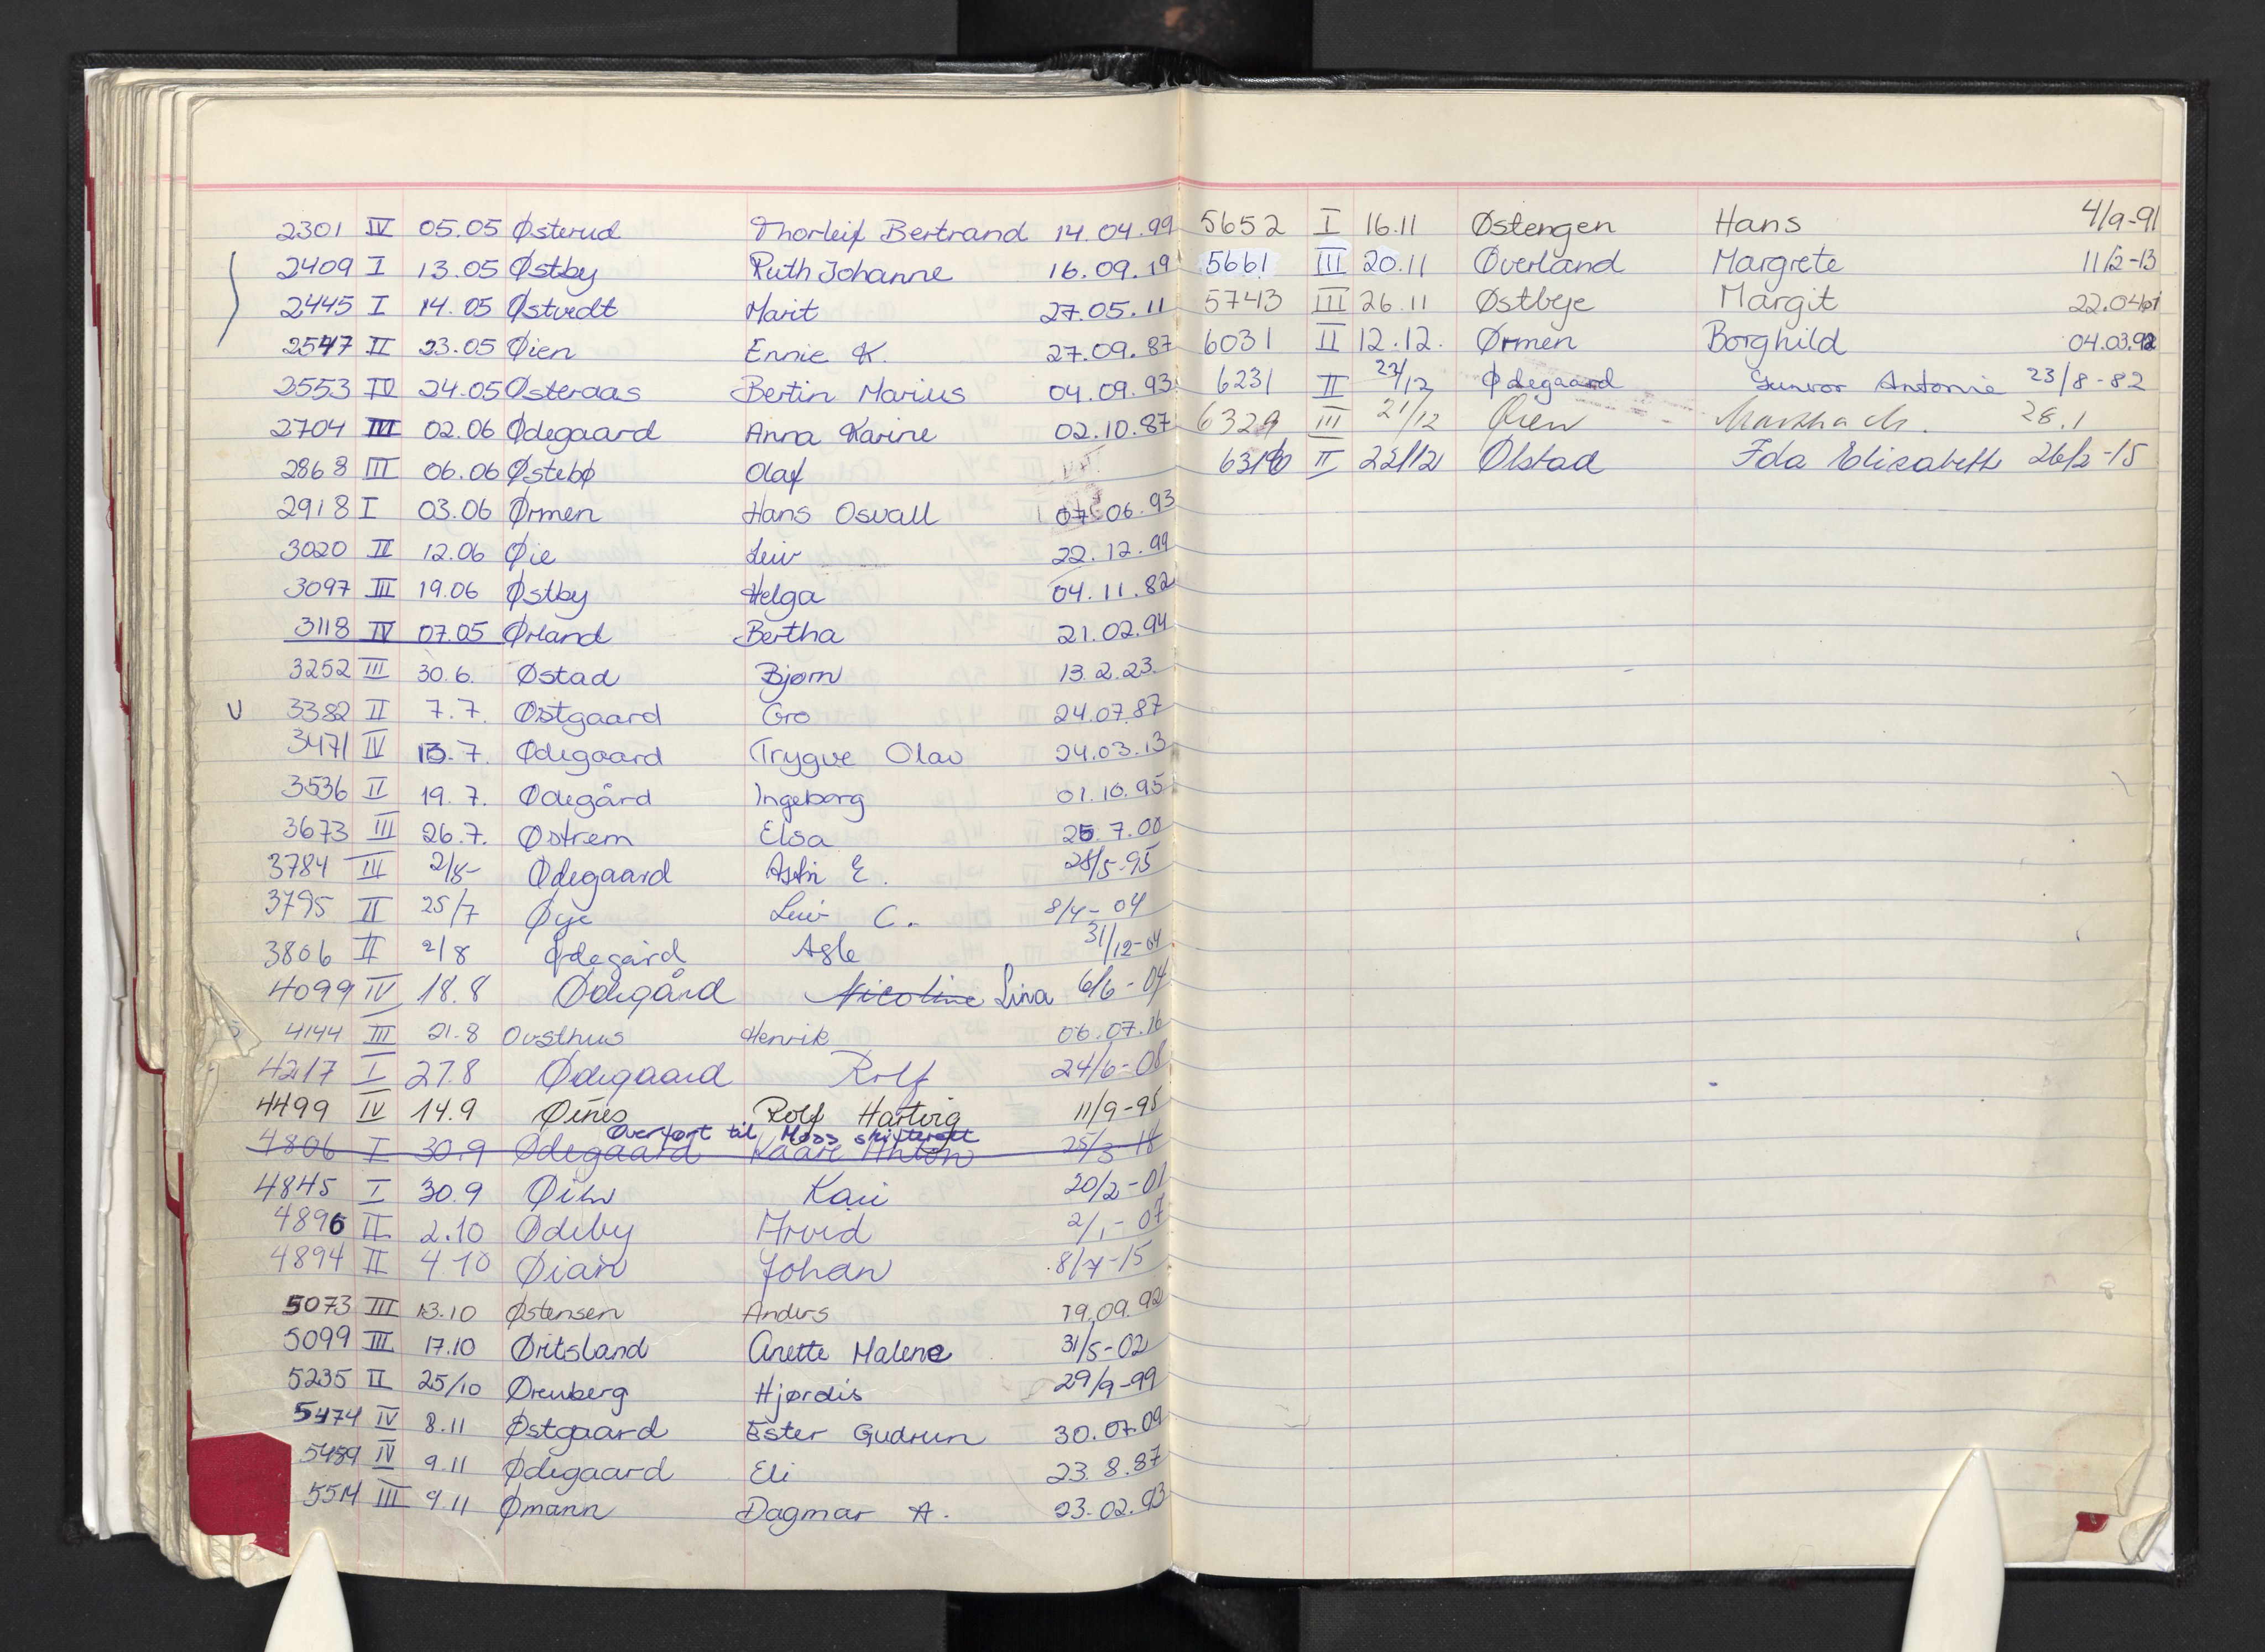 2301 IV 05.05 Østerud Thorleif Bertrand 14.04.99
2409 I 13.05 Østby Ruth Johanne 16.09.19
2445 I 14.05 Østvedt Marit 27.05.11
2547 II 23.05 Øien Ennie K. 27.09.87
2553 IV 24.05 Østeraas Bertin Marius 04.09.93
2704 III 02.06 Ødegaard Anna Karine 02.10.87
2868 III 06.06 Østebø Olaf
2918 I 03.06 Ørmen Hans Osvall 07.06.93
3020 II 12.06 Øie Leiv 22.12.99
3097 III 19.06 Østby Helga 04.11.82
3118 IV 07.05 Ørland Bertha 21.02.94
3252 III 30.6. Østad Bjørn 13.2.23.
3382 II 7.7. Østgaard Gro 24.07.87
3471 IV 13.7. Ødegaard Trygve Olav 24.03.13
3536 II 19.7. Ødegård Ingeborg 01.10.95
3673 III 26.7. Østrem Elsa 25.7.00
3784 III 2/8- Ødegaard Astri E. 28/5-95
3795 II 25/7 Øye Leiv C. 8/4-04
3806 II 2/8 Ødegård Asle 31/12-04
4099 IV 18.8 Ødegård Nicoline Lina 6/6-04
4144 III 21.8 Ovsthus Henrik 06.07.16
4217 I 27.8 Ødegaard Rolf 24/6-08
4499 IV 14.9 Øines Rolf Hartvig 11/9-95
Overført til Moss skifterett
4806 I 30.9 Ødegaard Kaare Anton 25/3-18
4845 I 30.9 Øien Kari 20/2-01
4896 II 2.10 Ødeby Arvid 2/1-07
4894 II 4.10 Øian Johan 8/7-15
5073 III 13.10 Østensen Anders 19.09.92
5099 III 17.10 Øritsland Anette Malene 31/5-02
5235 II 25/10 Ørenberg Hjørdis 29/9-99
5474 IV 8.11 Østgaard Ester Gudrun 30.07.09
5489 IV 9.11 Ødegaard Eli 23.8.87
5514 III 9.11 Ømann Dagmar A. 23.02.93
5652 I 16.11 Østengen Hans 4/9-91
5661 III 20.11 Øverland Margrete 11/2-13
5743 III 26.11 Østbye Margit 22.04.01
6031 II 12.12. Ørmen Borghild 04.03.92
6231 II 22/12 Ødegaard Gunvor Antonie 23/8-82
6329 III 21/12 Øien Martha M. 28.1
II 22/12 Ølstad Ida Elisabeth 26/2-15